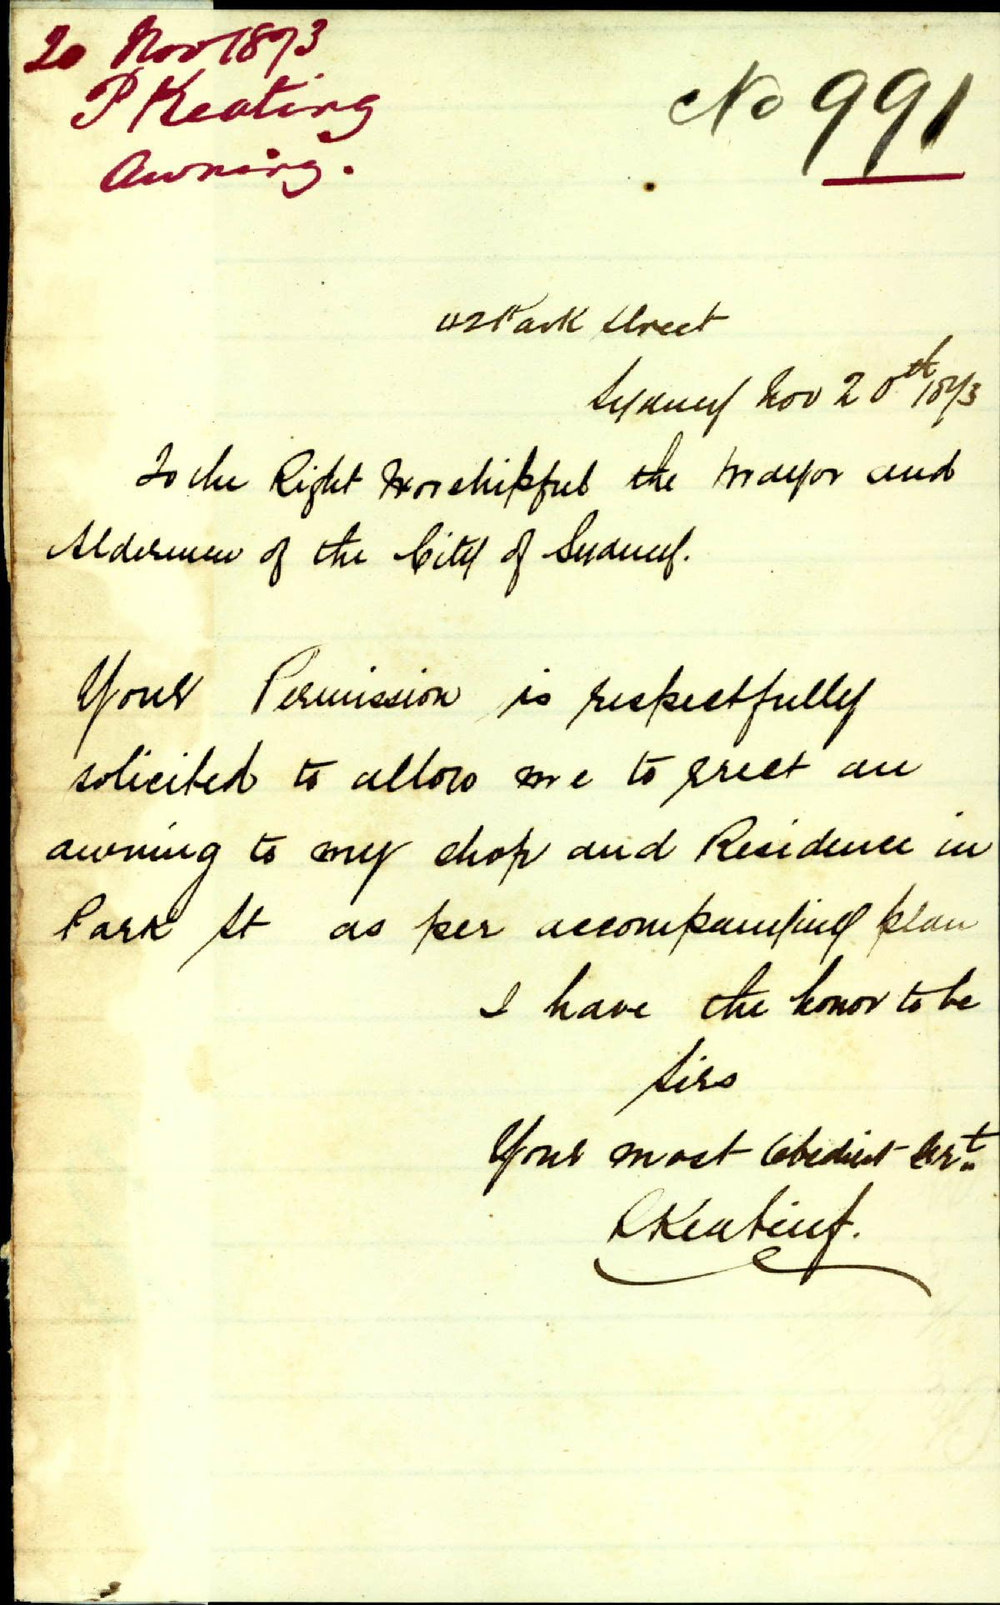 20 Nov 1873
P Keating
Awning.
No 991
112 Park Street
Sydney Nov 20th 1873
To the Right Worshipful the Mayor and
Aldermen of the City of Sydney.
Your Permission is respectfully
solicited to allow me to erect an
awning to my shop and Residence in
Park St as per accompanying plan
I have the honor to be
Sirs
Your most Obedient Srt
P Keating.